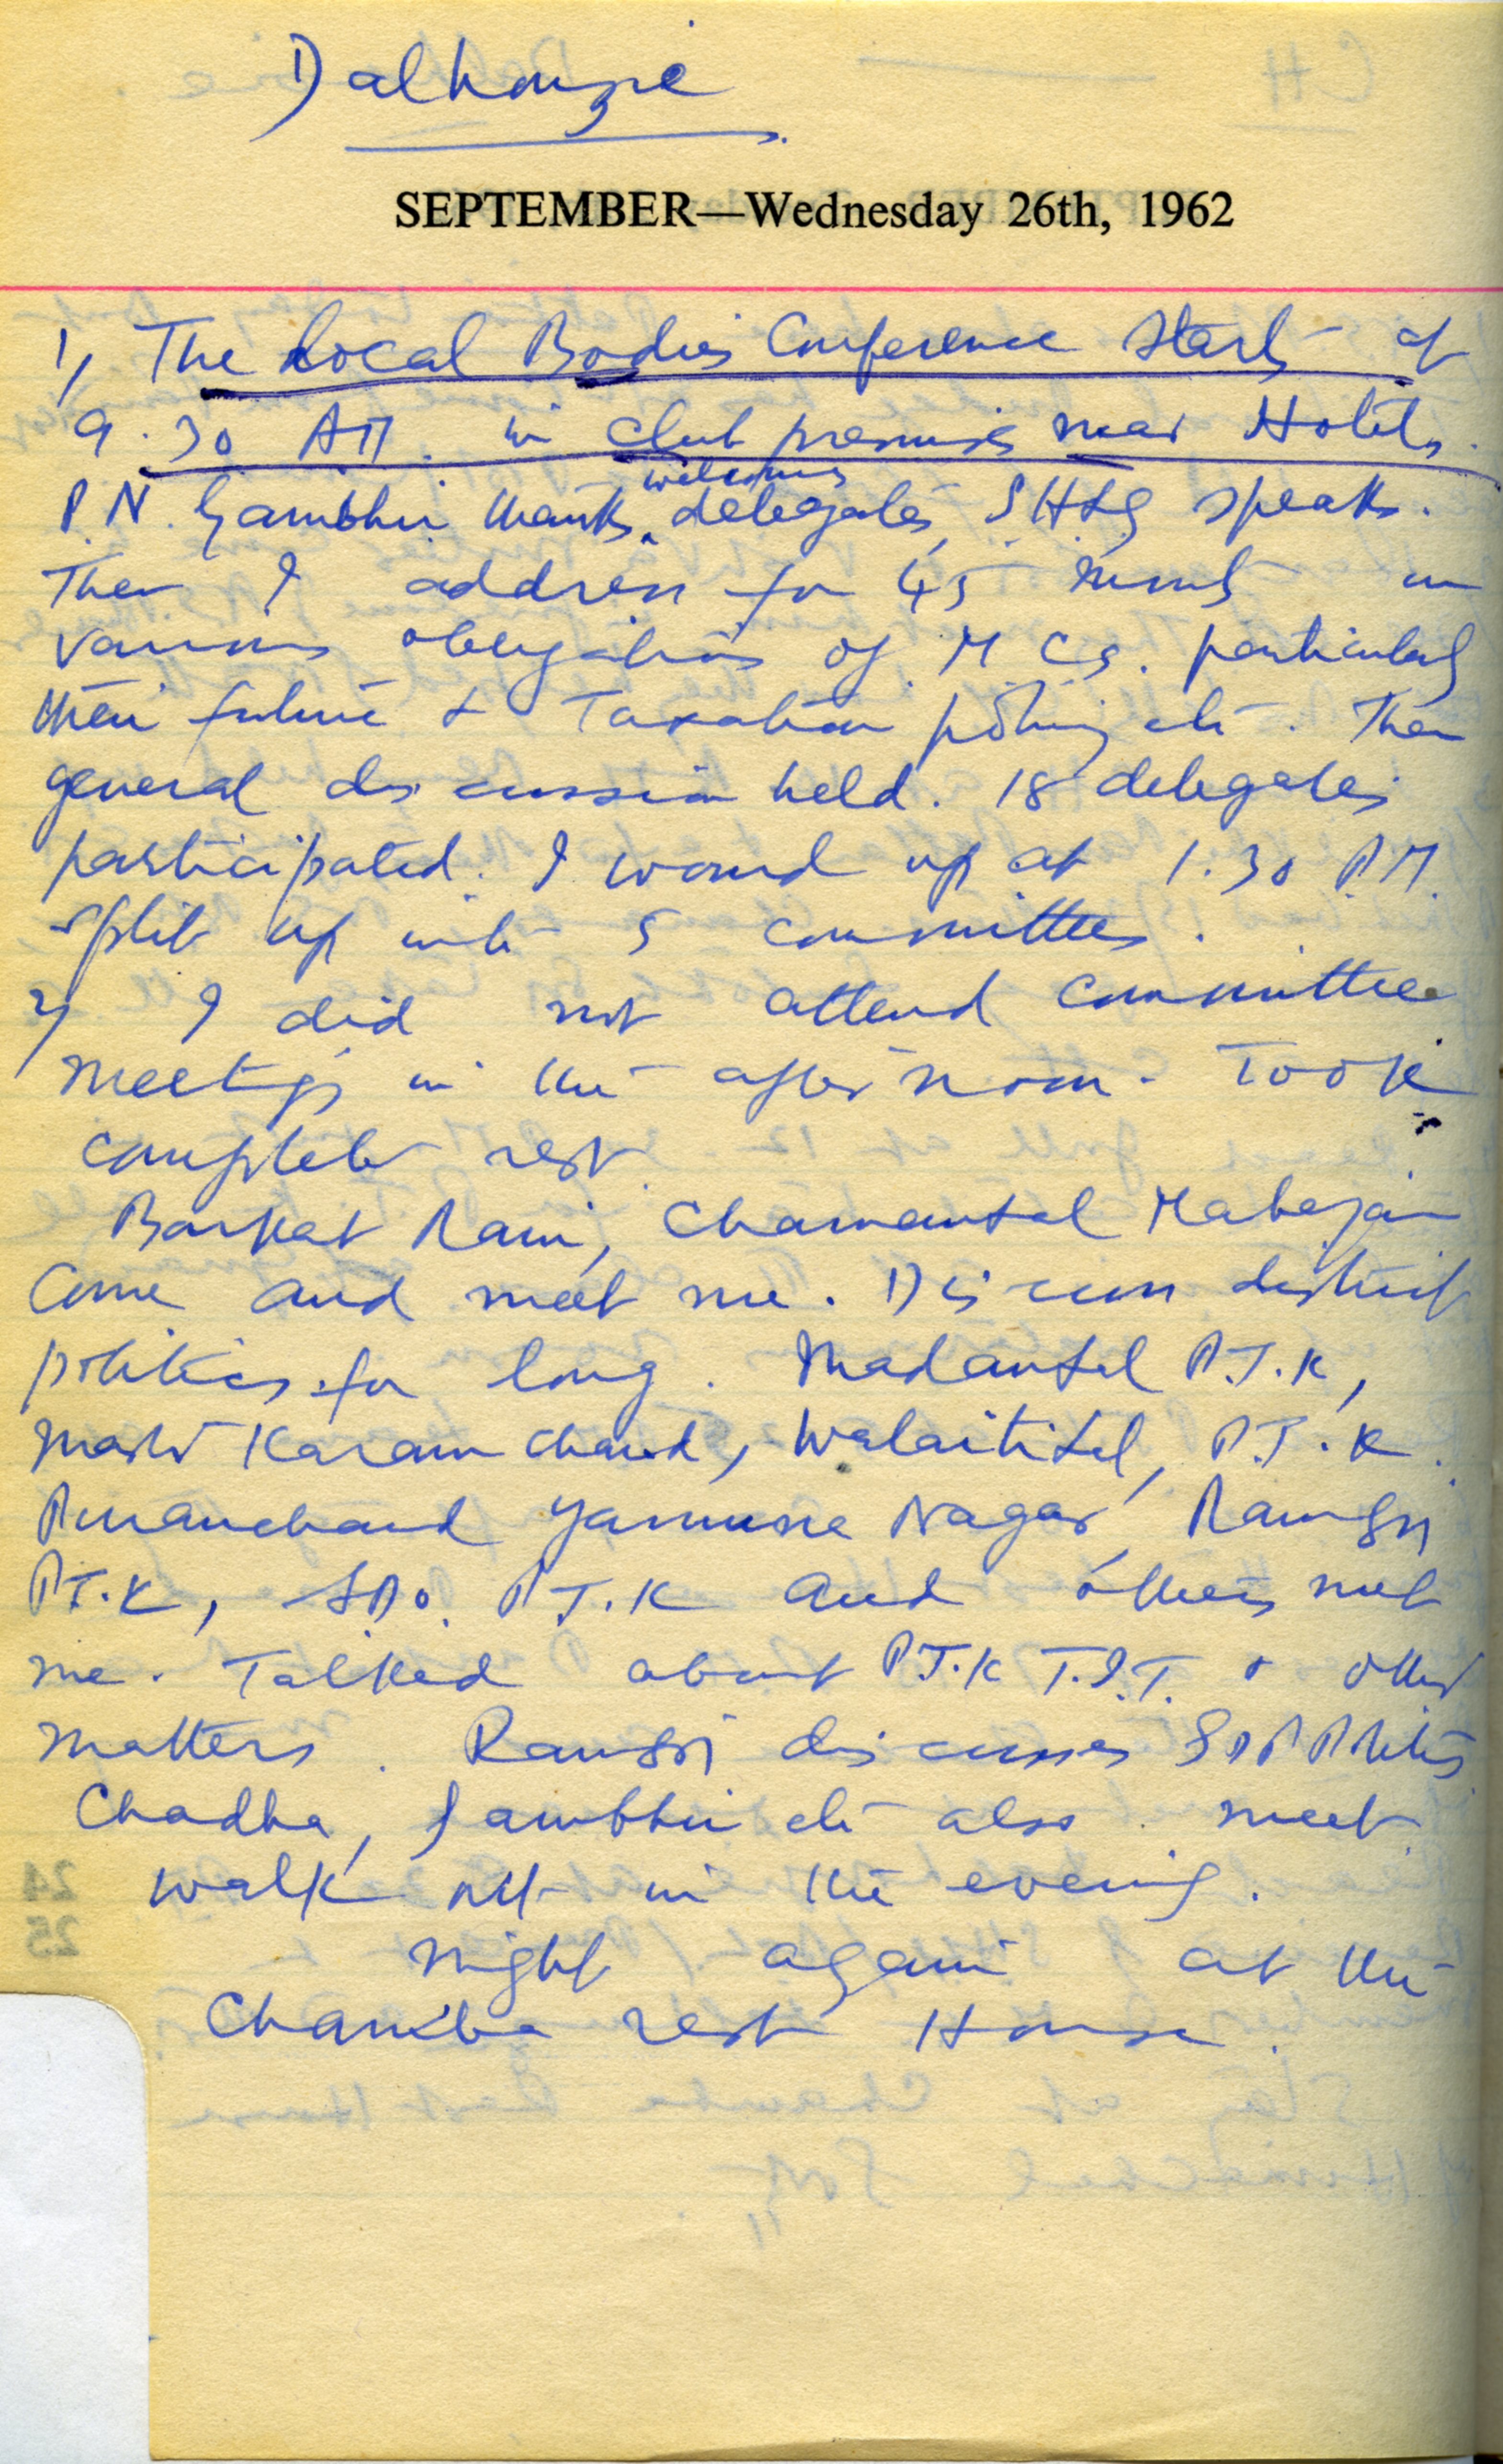 Dalhousie
SEPTEMBER—Wednesday 26th, 1962
1, The Local Bodies Conference starts at
9.30 AM. in club premises near Hotels.
welcomes
P.N. Gambhir thanks delegates, speaks.
Then I address for 45 minuts on
various obligations of M.Cs. particularly
their future & Taxation policy etc. Then
general discussion held. 18 delegates
participated. I wound up at 1.30 P.M.
split up into 5 committees.
2, I did not attend committee
meetings in the afternoon. Took
complete rest.
Barkat Ram, Chamanlal Mahajan
come and meet me. Discuss district
politics for long. Madanlal P.T.K,
Karam Chand, Walaitilal, P.T.K.
Puranchand Yamuna Nagar, Ramsri
P.T.K, SDO. P.T.K and others met
me. Talked about P.T.K T.I.T. & other
matters. Ramsri discusses
Chadha, Gambhir etc also meet.
walk out in the evening.
night again at the
Chamba rest House.
24
25